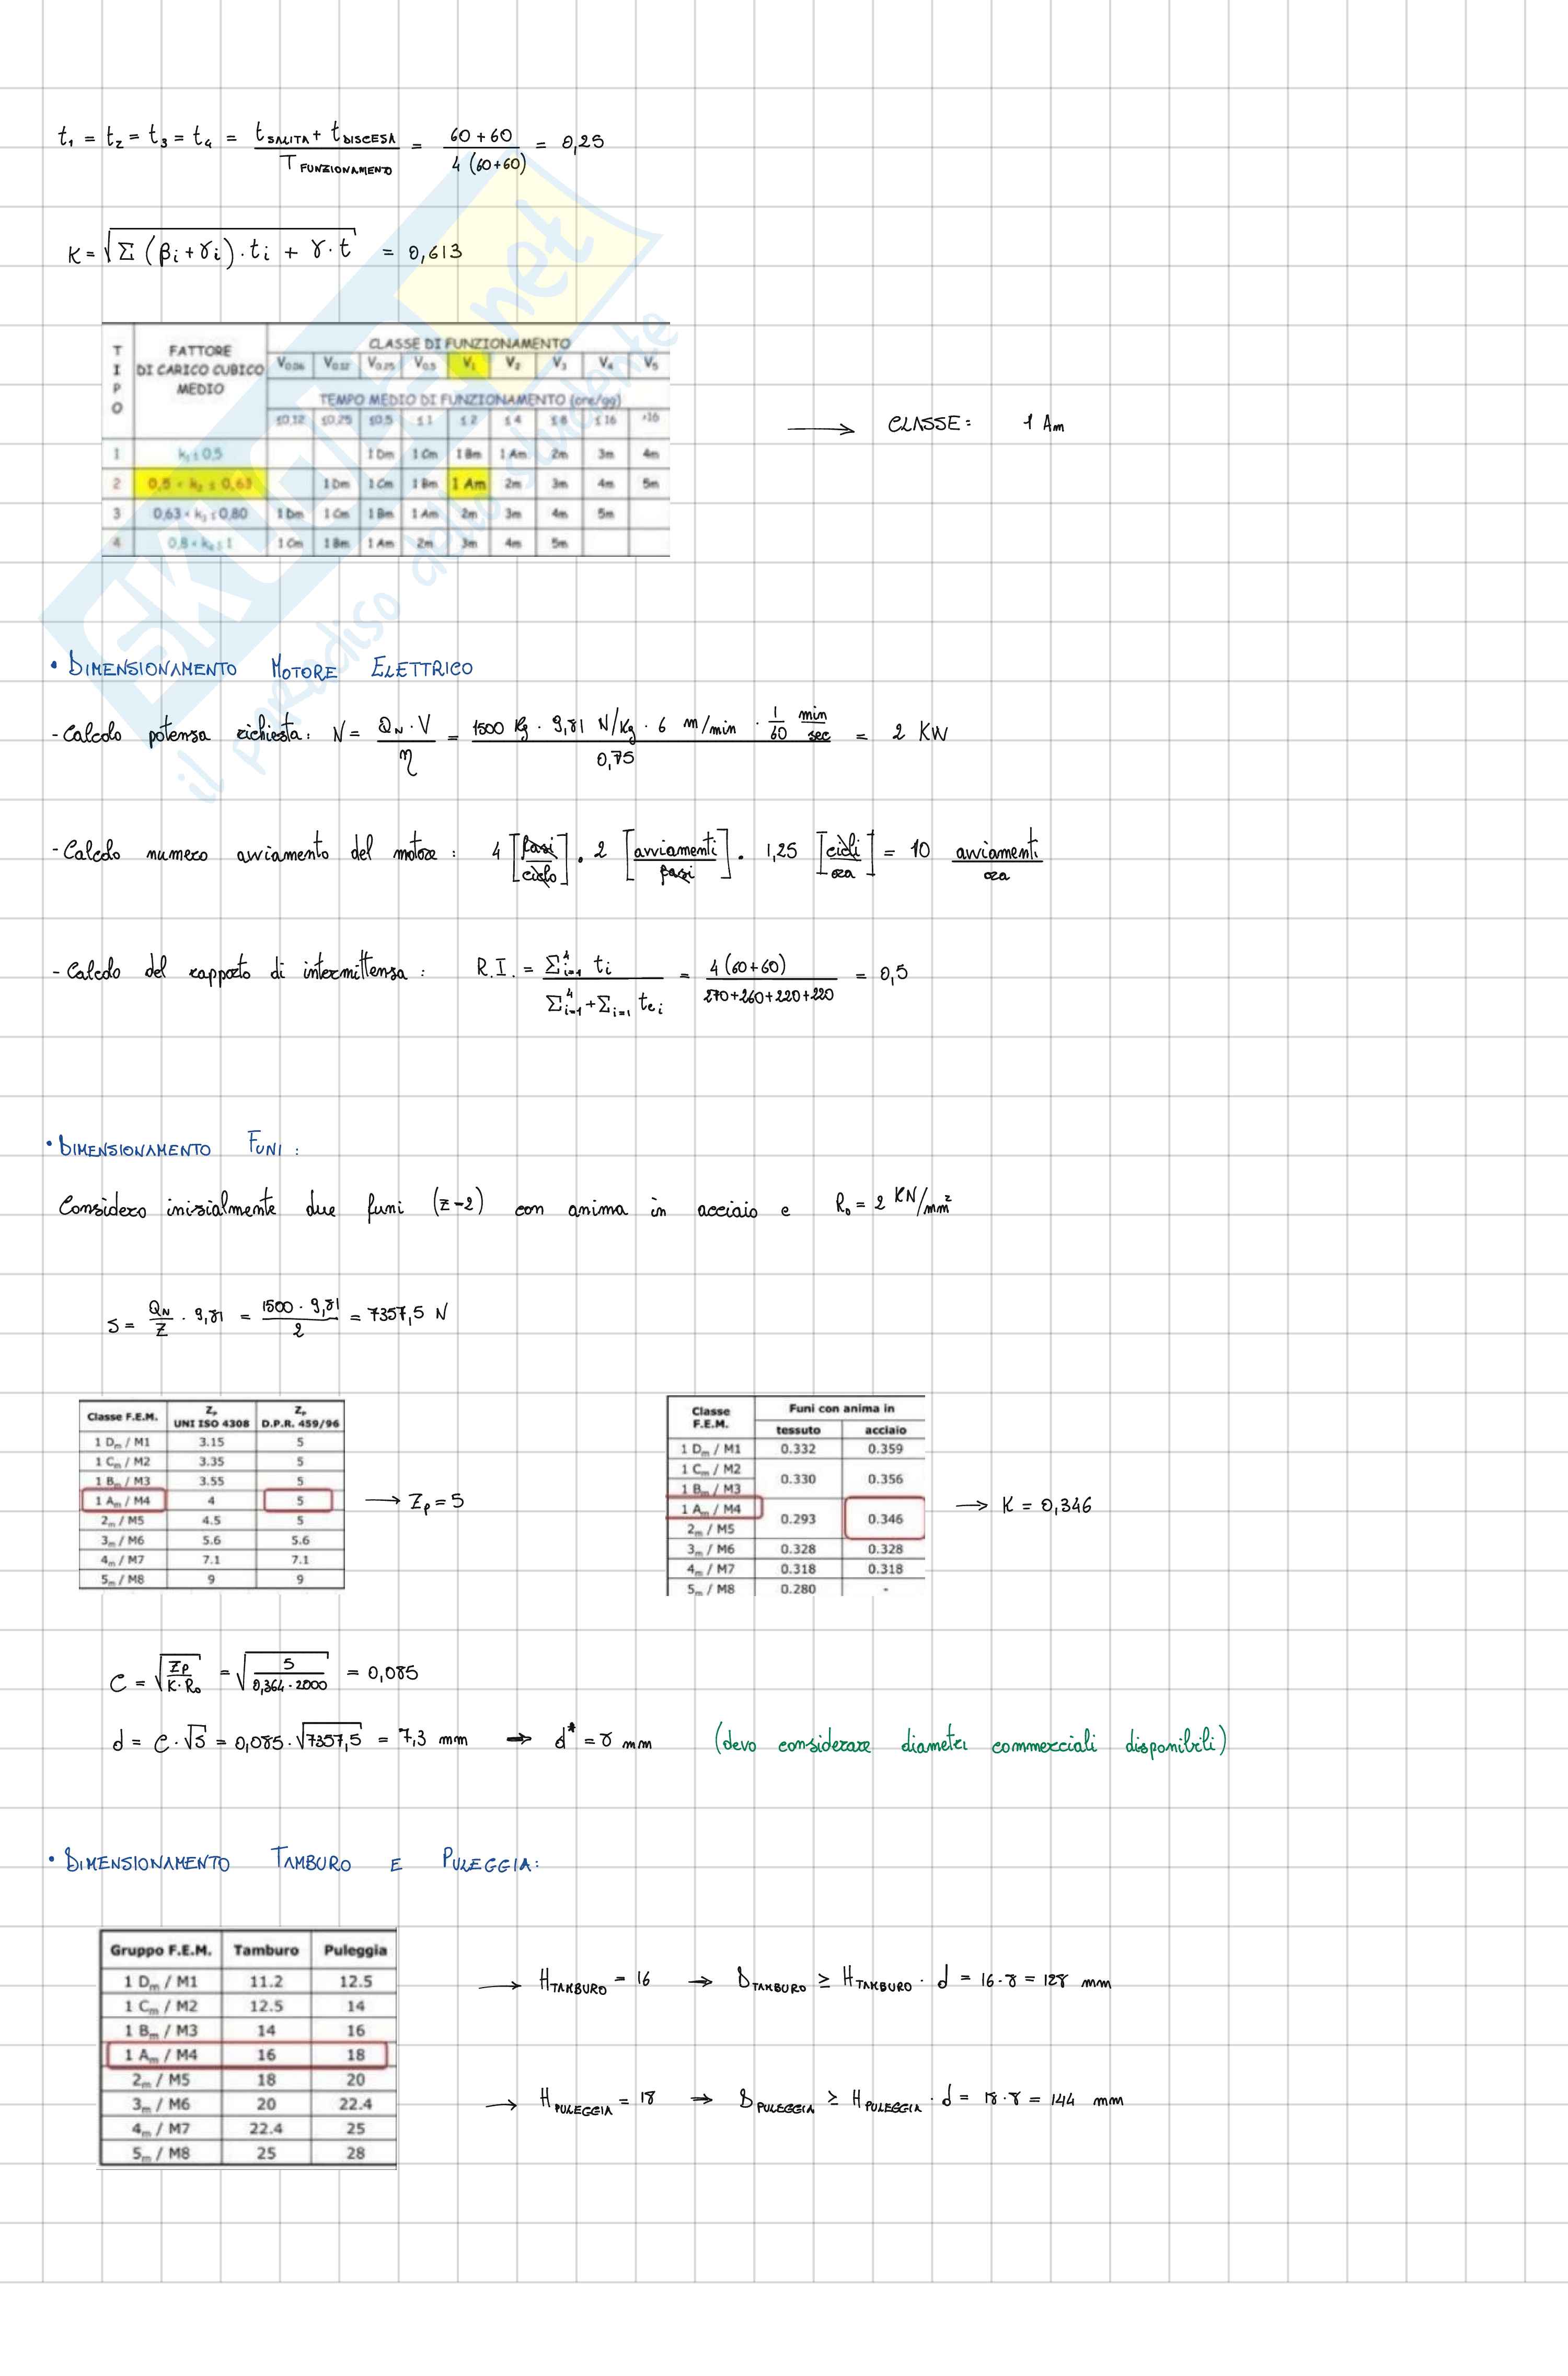 t₁ = t₂ = t₃ = t₄ = (t SALITA + t DISCESA) / T FUNZIONAMENTO = (60+60) / 4(60+60) = 0,25
K = √(Σ (βi+γi)·ti + γ·t) = 0,613
TIPO | FATTORE DI CARICO CUBICO MEDIO | CLASSE DI FUNZIONAMENTO
V0.06 | V0.12 | V0.25 | V0.5 | V1 | V2 | V3 | V4 | V5
TEMPO MEDIO DI FUNZIONAMENTO (ore/gg)
≤0,12 | ≤0,25 | ≤0,5 | ≤1 | ≤2 | ≤4 | ≤8 | ≤16 | >16
1 | k₁ ≤ 0,5 | | | 1 Dm | 1 Cm | 1 Bm | 1 Am | 2m | 3m | 4m
2 | 0,5 < k₂ ≤ 0,63 | | 1 Dm | 1 Cm | 1 Bm | 1 Am | 2m | 3m | 4m | 5m
3 | 0,63 < k₃ ≤ 0,80 | 1 Dm | 1 Cm | 1 Bm | 1 Am | 2m | 3m | 4m | 5m
4 | 0,8 < k₄ ≤ 1 | 1 Cm | 1 Bm | 1 Am | 2m | 3m | 4m | 5m
→ CLASSE: 1 Am
SKUOLA.net
il paradiso dello studente
• DIMENSIONAMENTO MOTORE ELETTRICO
- Calcolo potenza richiesta: N = QN · V / η = 1500 Kg · 9,81 N/Kg · 6 m/min · 1/60 min/sec / 0,75 = 2 KW
- Calcolo numero avviamento del motore: 4 [fasi/ciclo] · 2 [avviamenti/fasi] · 1,25 [cicli/ora] = 10 avviamenti/ora
- Calcolo del rapporto di intermittenza: R.I. = Σ⁴i=1 ti / Σ⁴i=1 + Σi=1 tei = 4(60+60) / 270+260+220+220 = 0,5
• DIMENSIONAMENTO FUNI:
Considero inizialmente due funi (z-2) con anima in acciaio e R₀ = 2 KN/mm²
S = QN/Z · 9,81 = 1500 · 9,81 / 2 = 7357,5 N
Classe F.E.M. | Zp UNI ISO 4308 | Zp D.P.R. 459/96
1 Dm / M1 | 3.15 | 5
1 Cm / M2 | 3.35 | 5
1 Bm / M3 | 3.55 | 5
1 Am / M4 | 4 | 5
2m / M5 | 4.5 | 5
3m / M6 | 5.6 | 5.6
4m / M7 | 7.1 | 7.1
5m / M8 | 9 | 9
→ Zp = 5
Classe F.E.M. | Funi con anima in
tessuto | acciaio
1 Dm / M1 | 0.332 | 0.359
1 Cm / M2
1 Bm / M3 | 0.330 | 0.356
1 Am / M4
2m / M5 | 0.293 | 0.346
3m / M6 | 0.328 | 0.328
4m / M7 | 0.318 | 0.318
5m / M8 | 0.280 | -
→ K = 0,346
C = √(Zp / K·R₀) = √(5 / 0,364·2000) = 0,085
d = C·√S = 0,085·√7357,5 = 7,3 mm → d* = 8 mm (devo considerare diametri commerciali disponibili)
• DIMENSIONAMENTO TAMBURO E PULEGGIA:
Gruppo F.E.M. | Tamburo | Puleggia
1 Dm / M1 | 11.2 | 12.5
1 Cm / M2 | 12.5 | 14
1 Bm / M3 | 14 | 16
1 Am / M4 | 16 | 18
2m / M5 | 18 | 20
3m / M6 | 20 | 22.4
4m / M7 | 22.4 | 25
5m / M8 | 25 | 28
→ H TAMBURO = 16 → D TAMBURO ≥ H TAMBURO · d = 16·8 = 128 mm
→ H PULEGGIA = 18 → D PULEGGIA ≥ H PULEGGIA · d = 18·8 = 144 mm